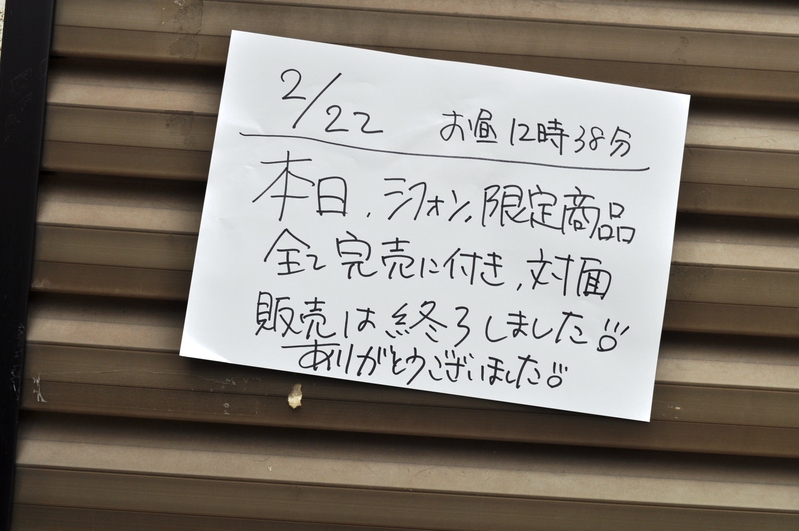 2/22 お昼12時38分
本日、シフォン、限定商品
全て完売に付き、対面
販売は終了しました!!
ありがとうございました!!